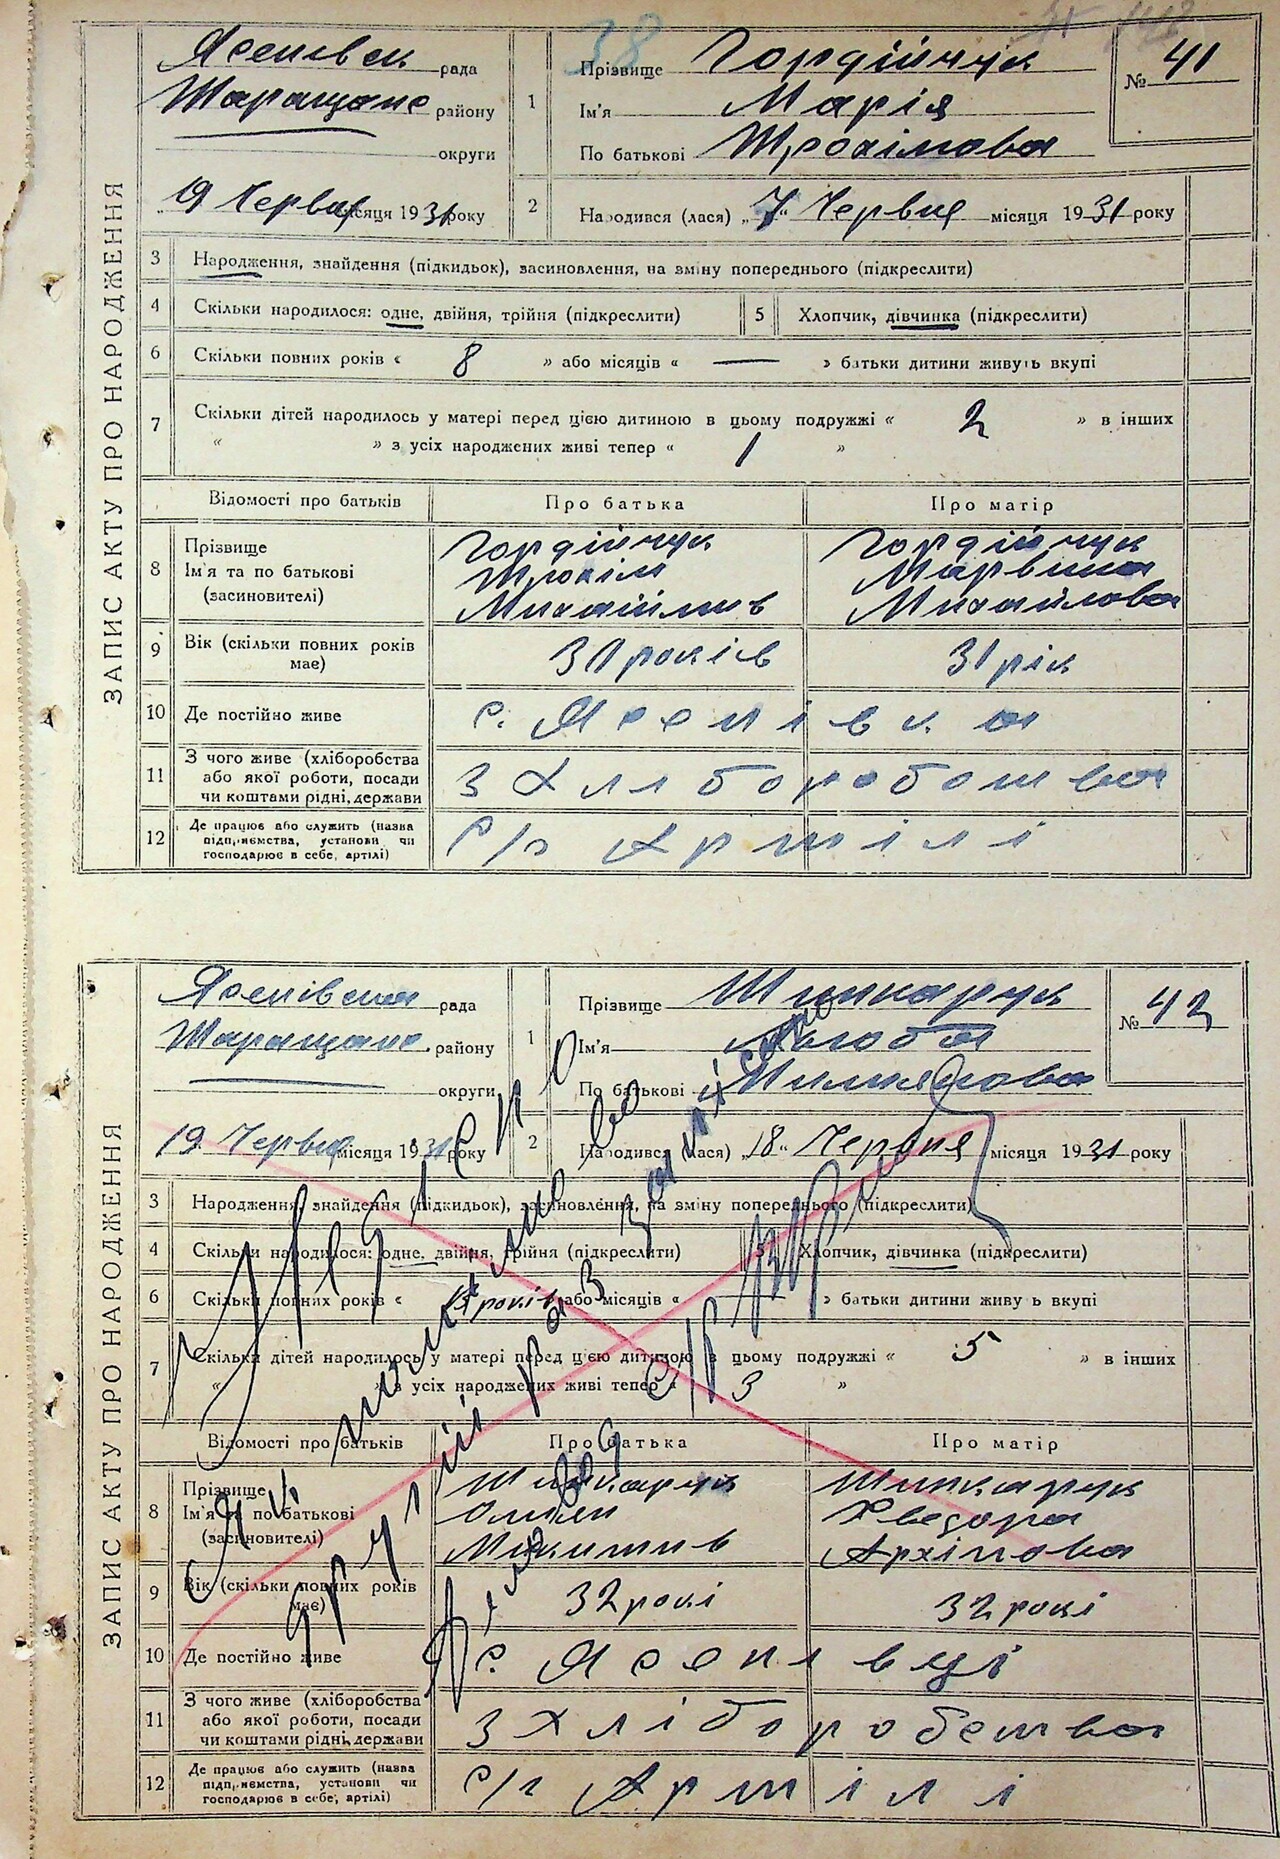 38
ЗАПИС АКТУ ПРО НАРОДЖЕННЯ
Ясенівськ рада
Таращанс району
округи
19 Червня місяця 1931 року
1 Прізвище Гордійчук
Ім'я Марія
По батькові Трохімова
№ 41
2 Народився (лася) „7“ Червня місяця 1931 року
3 Народження, знайдення (підкидьок), засиновлення, на зміну попереднього (підкреслити)
4 Скільки народилося: одне, двійня, трійня (підкреслити) 5 Хлопчик, дівчинка (підкреслити)
6 Скільки повних років « 8 » або місяців « — » батьки дитини живуть вкупі
7 Скільки дітей народилось у матері перед цією дитиною в цьому подружжі « 2 » в інших
« » з усіх народжених живі тепер « 1 »
Відомості про батьків Про батька Про матір
8 Прізвище Гордійчук Гордійчук
Ім'я та по батькові Трохім
(засиновителі) Михайлив Михайлова
9 Вік (скільки повних років має) 31 років 31 рік
10 Де постійно живе с. Ясенівка
11 З чого живе (хліборобства
або якої роботи, посади
чи коштами рідні, держави З Хліборобства
12 Де працює або служить (назва
підприємства, установи чи
господарює в себе, артілі) С/г Артілі
ЗАПИС АКТУ ПРО НАРОДЖЕННЯ
Ясенівська рада
Таращанс. району
округи
19 Червня місяця 1931 року
1 Прізвище Шинкарук
Ім'я Люба
По батькові
№ 42
2 Народився (лася) „18“ Червня місяця 1931 року
3 Народження, знайдення (підкидьок), засиновлення, на зміну попереднього (підкреслити)
4 Скільки народилося: одне, двійня, трійня (підкреслити) 5 Хлопчик, дівчинка (підкреслити)
6 Скільки повних років « років » або місяців « — » батьки дитини живуть вкупі
7 Скільки дітей народилось у матері перед цією дитиною в цьому подружжі « 5 » в інших
« » з усіх народжених живі тепер « 3 »
Відомості про батьків Про батька Про матір
8 Прізвище Шинкарук Шинкарук
Ім'я та по батькові Хведора
(засиновителі) Микитив Архіпова
9 Вік (скільки повних років має) 32 рокі 32 рокі
10 Де постійно живе с. Ясенівці
11 З чого живе (хліборобства
або якої роботи, посади
чи коштами рідні, держави З Хліборобства
12 Де працює або служить (назва
підприємства, установи чи
господарює в себе, артілі) С/г Артілі
другий раз записано